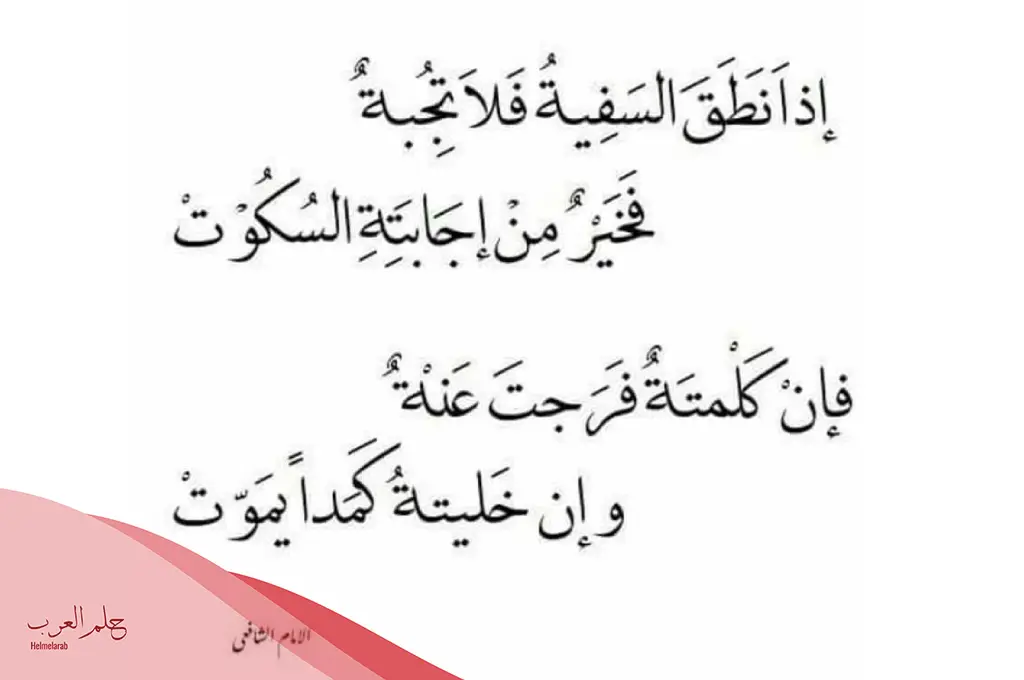 إذاَ نَطَقَ السَفِيةُ فَلاَ تَجُِبةٌ
فَخَيْرٌ مِنْ إجَابتَِةِ السُكُوْتْ
فإنْ كَلْمتَةٌ فَرَجتَ عَنْةٌ
وإن خَليتةُ كَمَداً يمَوّتْ
الامام الشافعي
حلم العرب
Helmelarab